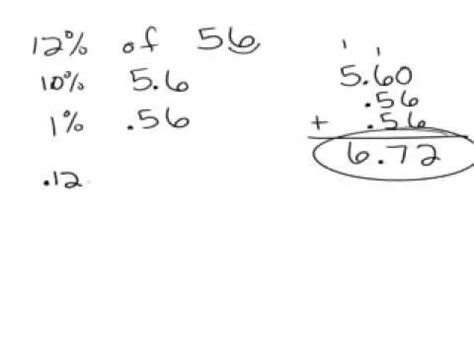 12% of 56
10% 5.6
1% .56
.12
1 1
5.60
.56
+ .56
6.72